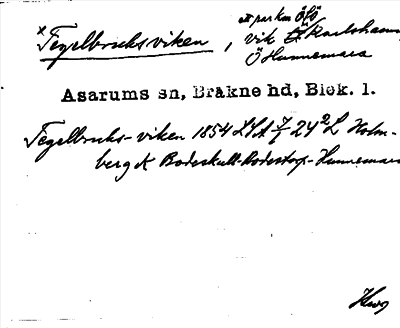 *Tegelbruksviken, vik ett par km ÖfÖ
Karlshamn
Ö Hunnemara
Asarums sn, Bräkne hd, Blek. l.
Tegelbruks-viken 1854 LSA 7/1 24² L Holm-
berg K Bodeskull-Rodestorp-Hunnemara